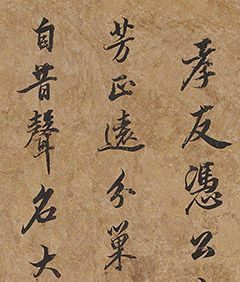 孝友憑公
芳正遠分巢
自昔聲名大